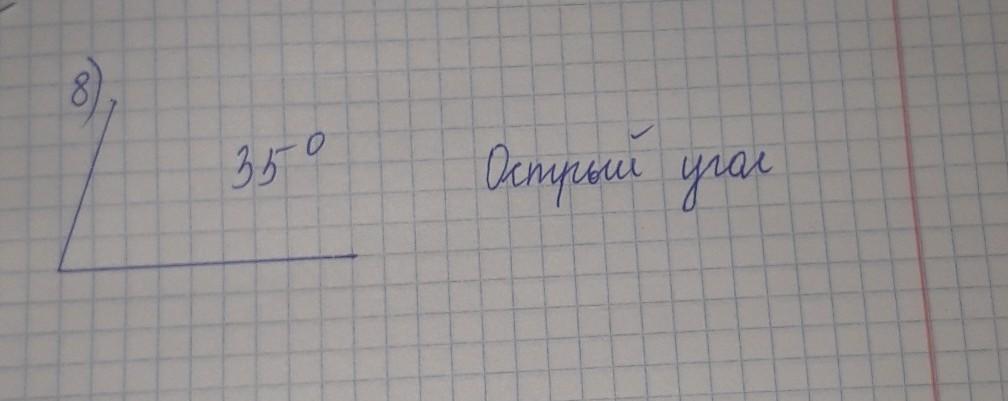 8)
35° Острый угол